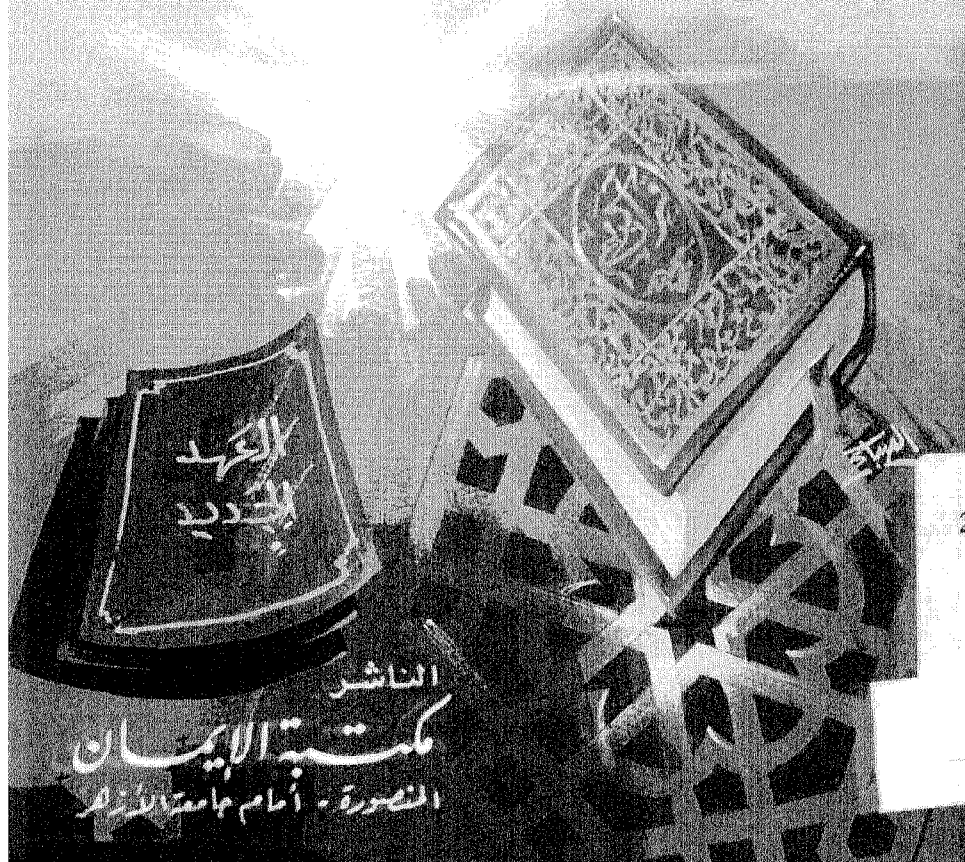 العهد
الجديد
الناشر
مكتبة الإيمان
المنصورة - أمام جامعة الأزهر